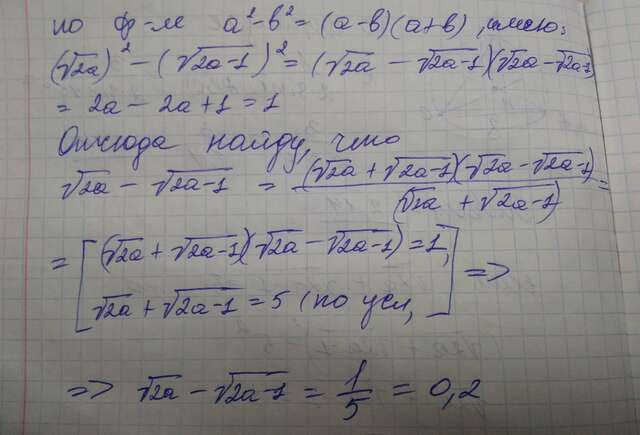 по ф-ле a² - b² = (a - b)(a + b), имею:
(√2a)² - (√2a-1)² = (√2a - √2a-1)(√2a - √2a-1)
= 2a - 2a + 1 = 1
Отсюда найду, что
√2a - √2a-1 = (√2a + √2a-1)(√2a - √2a-1) / (√2a + √2a-1) =
= [(√2a + √2a-1)(√2a - √2a-1) = 1,
√2a + √2a-1 = 5 (по усл,] =>
=> √2a - √2a-1 = 1/5 = 0,2